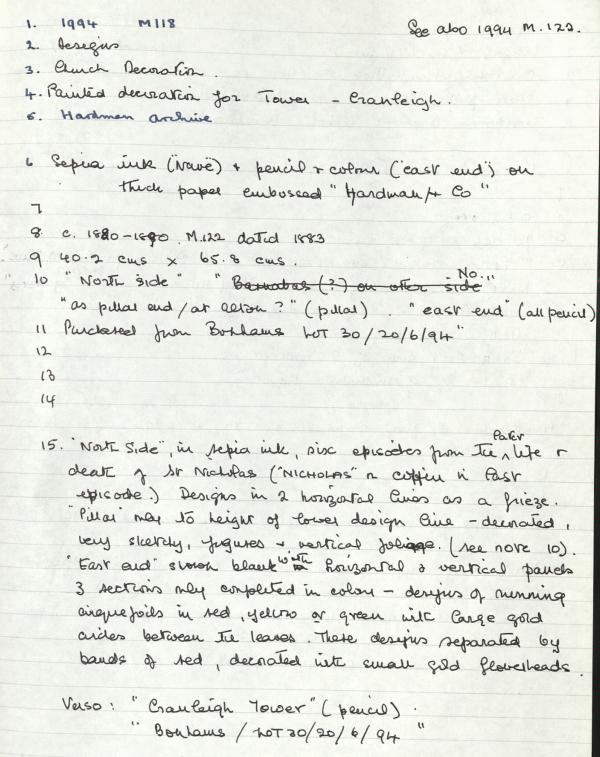 1. 1994 M118 See also 1994 M.122.
2. Designs
3. Church Decoration.
4. Painted decoration for Tower - Cranleigh.
5. Hardman archive
6 Sepia ink (Nave) + pencil + colour ("east end") on
thick paper embossed "Hardman + Co"
7
8 c. 1880-1890 M.122 dated 1883
9 40.2 cms x 65.8 cms.
10 "North side" " Barnabas (?) on other side No."
"as pillar end / at ?" (pillar). "east end" (all pencil)
11 Purchased from Bonhams LOT 30/20/6/94"
12
13
14
15. "North Side", in sepia ink, six episodes from the later life +
death of St Nicholas ("NICHOLAS" on coffin in last
episode.) Designs in 2 horizontal lines as a frieze.
"Pillar" only to height of lower design line - decorated,
very sketchy, figures + vertical foliage. (see note 10).
"East end" shown blank with horizontal & vertical panels
3 sections only completed in colour - designs of running
cinquefoils in red, yellow or green with large gold
circles between the leaves. These designs separated by
bands of red, decorated with small gold flowerheads.
Verso: "Cranleigh Tower" (pencil).
"Bonhams / LOT 30/20/6/94"